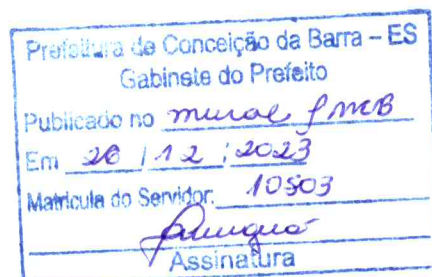 Prefeitura de Conceição da Barra – ES
Gabinete do Prefeito
Publicado no mural PMCB
Em 26 / 12 / 2023
Matricula do Servidor: 10503
Assinatura